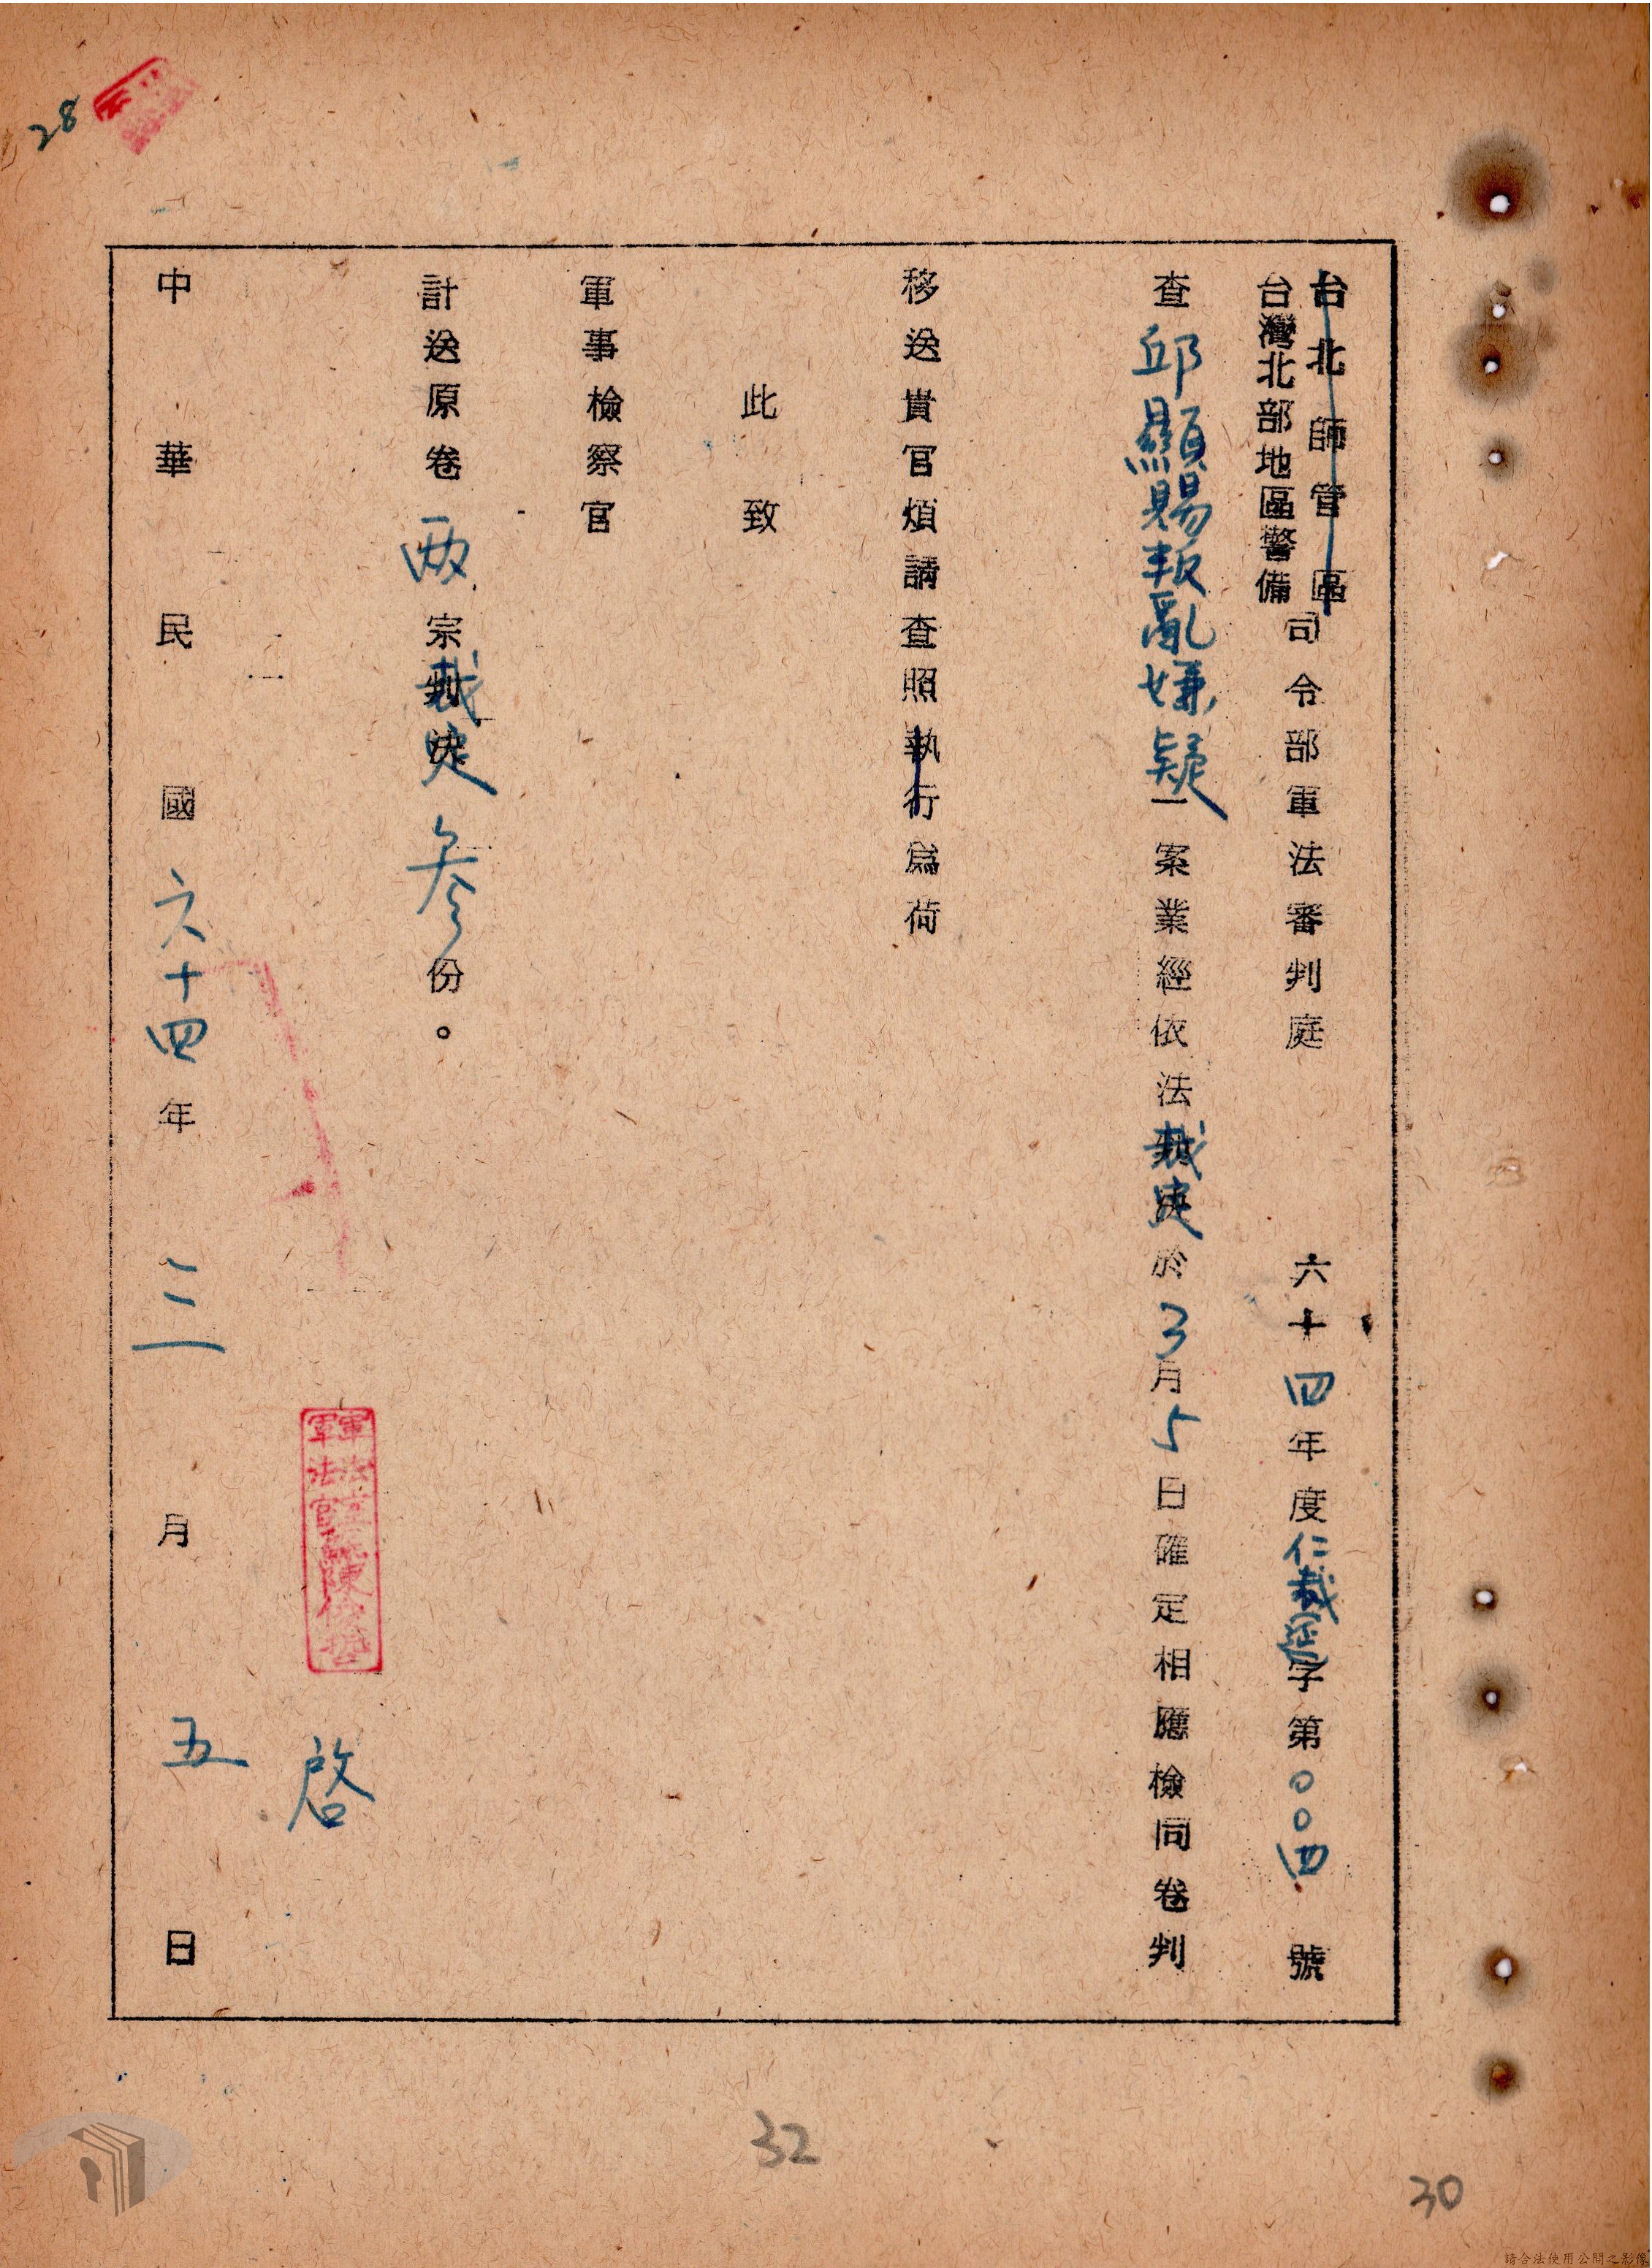 28
台北師管區
台灣北部地區警備司令部軍法審判庭 六十四年度仁裁字第〇〇四號
查邱顯賜叛亂嫌疑一案業經依法裁定於3月5日確定相應檢同卷判
移送貴官煩請查照執行為荷
此致
軍事檢察官
計送原卷兩宗裁定叁份。
軍法官陳
啓
中華民國六十四年三月五日
32
30
請合法使用公開之影像